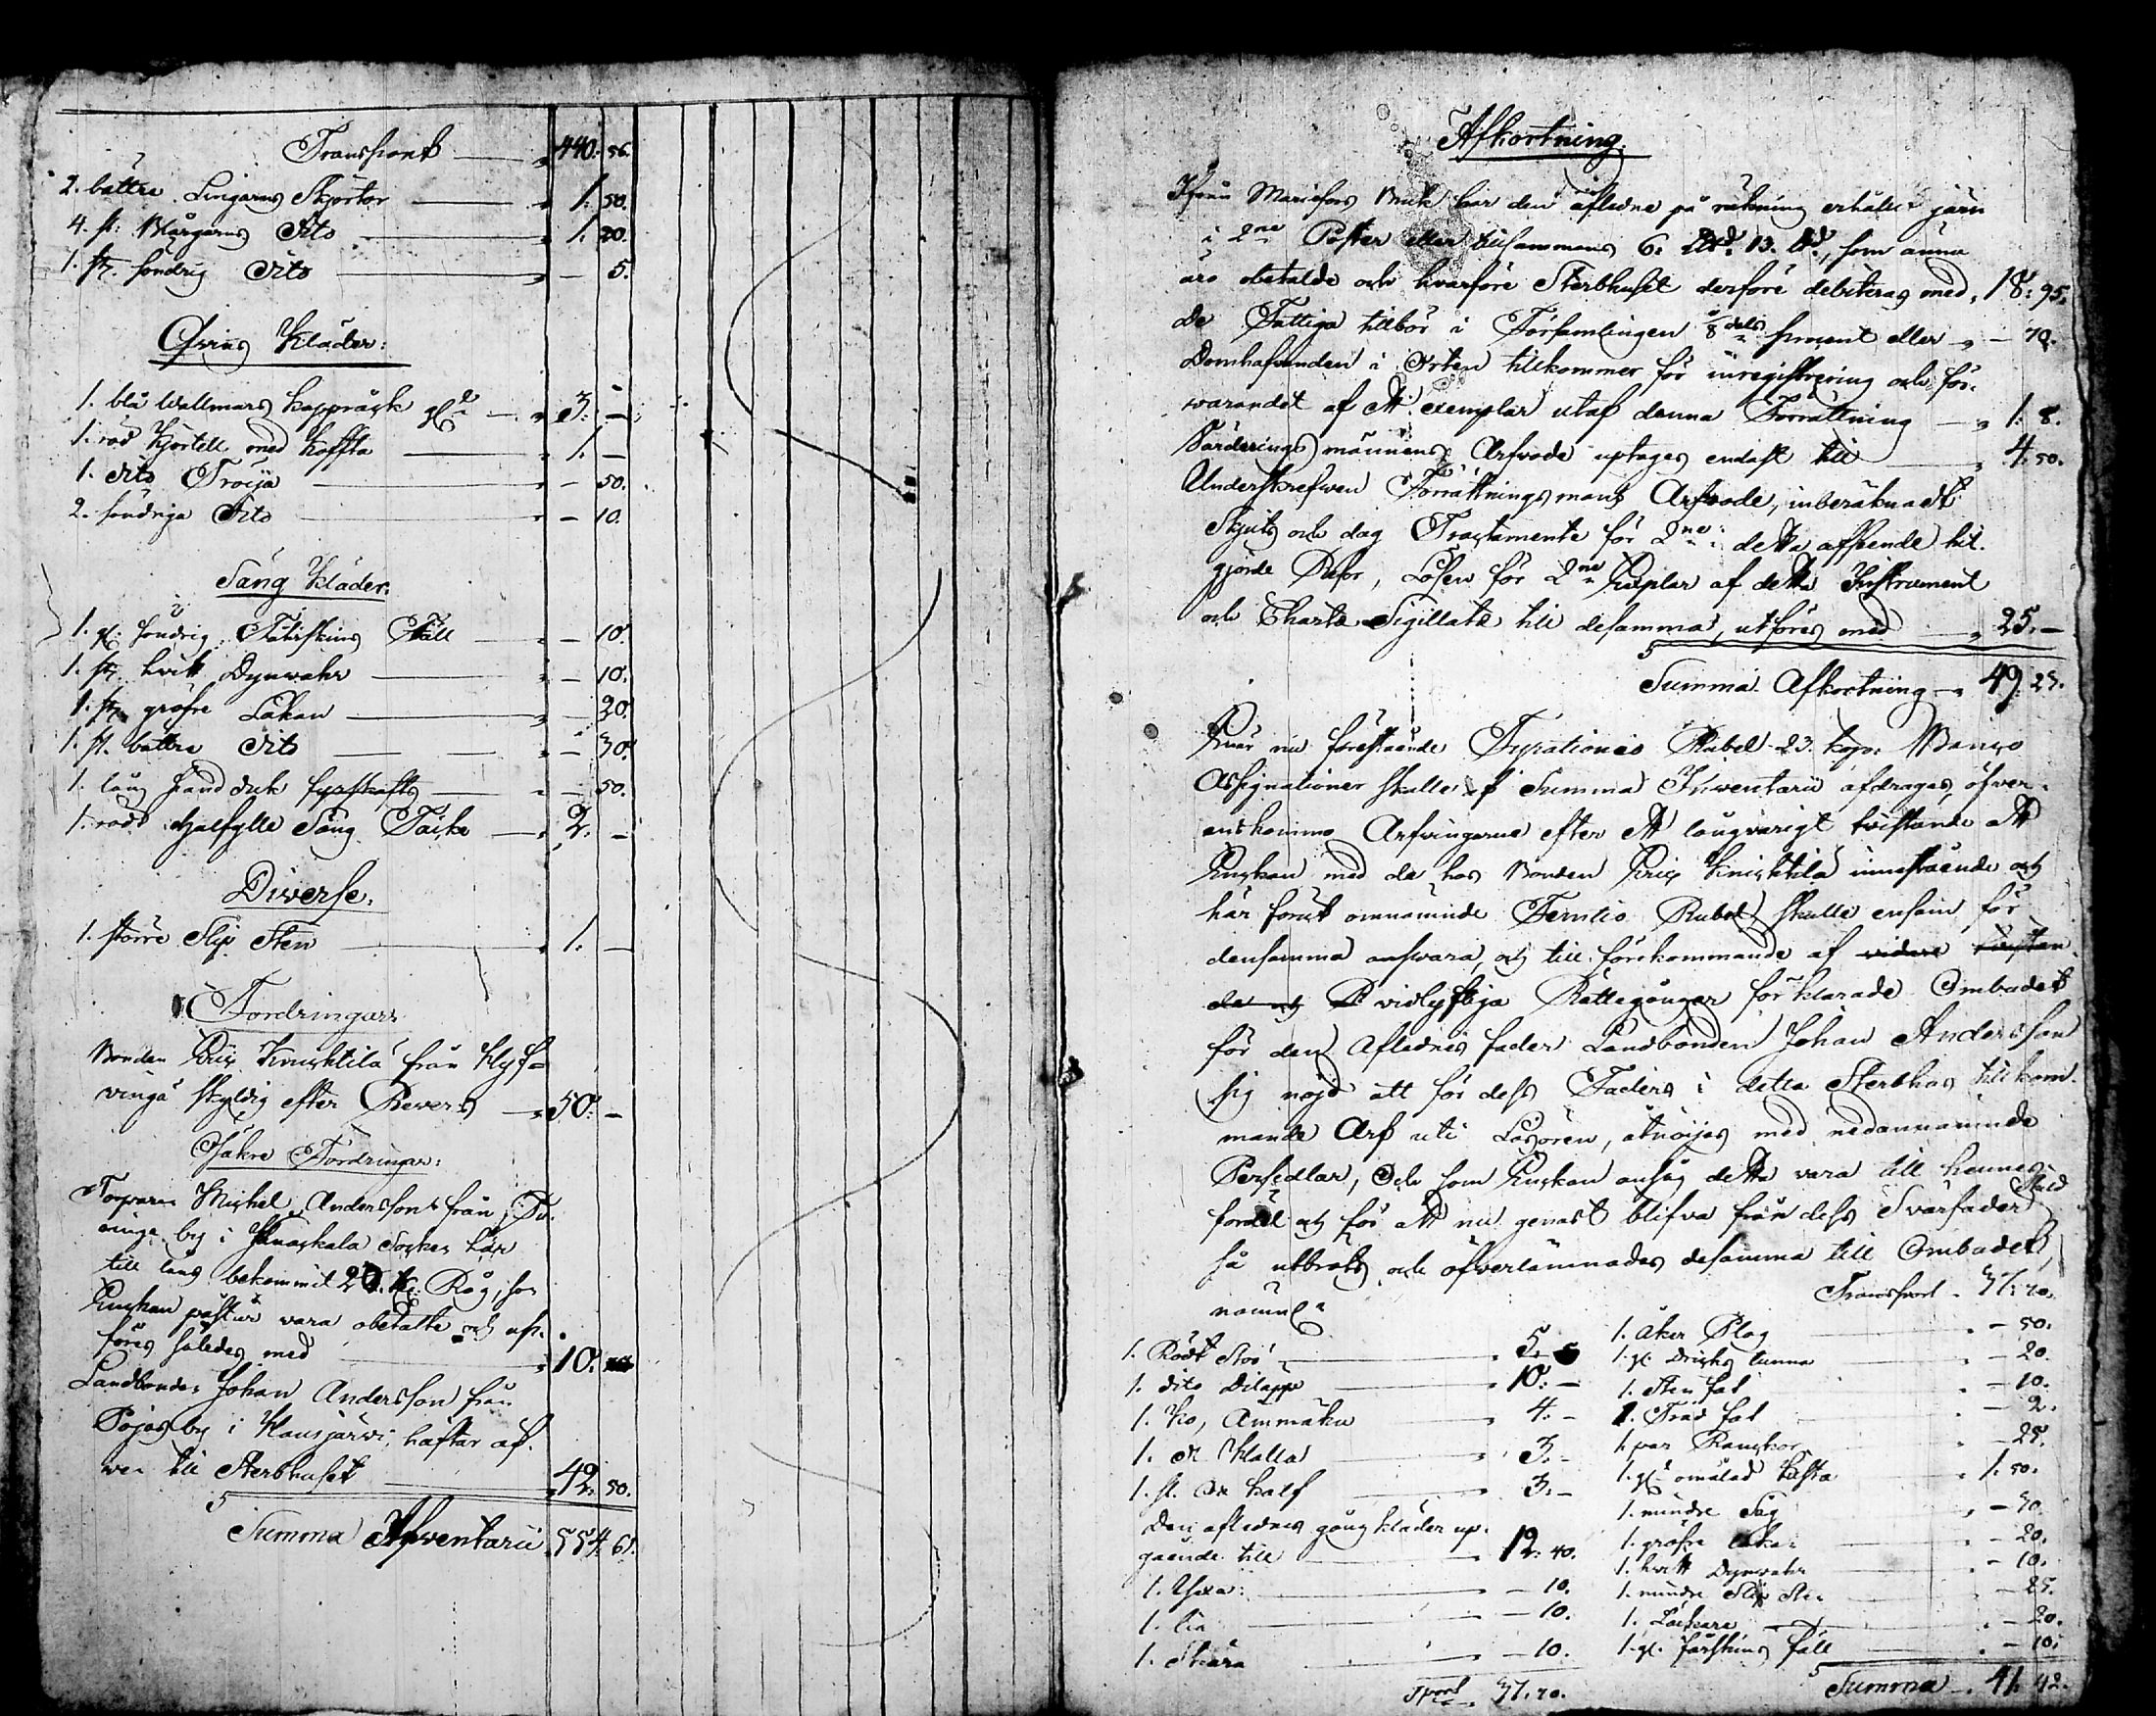 Transport — 440. 56.
2. bättre Lingarns Skjortor — 1. 50.
4. st: Blårgarns dito — 1. 20.
1. st. söndrig dito — 5.
Qvins Kläder:
1. blå Wallmars Kappråck gl. — 3. —
1. röd Kjortell med Koffta — 1. —
1. dito Tröija — 50.
2. söndriga dito — 10.
Säng Kläder.
1. gl: söndrig Fårskins Fäll — 10.
1. st. hvitt Dynwahr — 10.
1. st. gröfre Lakan — 20.
1. st. bättre dito — 30.
1. lång hand duk fyrskafts — 50.
1. rödt Halfylle Säng Täcke — 2. —
Diverse.
1. större Slip Sten — 1. —
Fordringar.
Bonden Eric Knicktilä från
vinga skyldig efter Revers — 50. —
Osäkre Fordringar:
Torparen Michel Andersson från
inge by i Janackala Socken har
till låns bekommit Råg, som
Enckan påstår vara obetalte och
föres således med — 10.
Landbonden Johan Andersson från
by i Hausjärvi, häftar äf-
wen till Sterbhuset — 42. 50.
Summa Inventarii 554. 61.
Afkortning.
Ifrån Mariefors Bruk har den aflidne på räkning erhållit järn
i 2ne Poster eller tillsammans 6. 13. som ännu
äro obetalde och hvarföre Sterbhuset derföre debiteras med, 18. 95.
De Fattiga tillkör i Församlingen 8dels procent eller — 70.
Domhafvanden i Orten tillkommer för inregistrering och för-
warandet af ett exemplar utaf denna Förrättning — 1. 8.
Värderings männens Arfvode uptages endast till — 4. 50.
Underskrefwen Förrättningsmans Arfvode, inberäknadt
Skjuts och dag Tractamente för 2ne detta afseende hit
gjorde Resor, Lösen för 2ne Exemplar af detta Instrument
och Charta Sigillata till desamma, utföres med — 25. —
Summa Afkortning — 49. 23.
När nu förestående Fyrationio Rubel 23. kop: Banco
Assignationer skulle af Summa Inventarii afdragas, öfver-
enskommo Arfvingarne efter ett långvarigt tvistande att
Enckan med de hos Bonden Eric Knicktilä innestående och
här förut omnämnde Femtio Rubel skulle ensam för
densamma answara, och till förekommande af widare twistan-
de och vidlyftiga Rättegångar förklarade Ombudet
för den Aflidnes fader Landbonden Johan Andersson
sig nöjd att för dess Faders i detta Sterbhus tillkom-
mande Arf uti Lösören, åtnöijas med nedannämnde
Persedlar, Och som Enckan ansåg detta vara till hennes
fördel och för att nu genast blifva från dess Svärfader skild
så utbrots och öfverlämnades desamma till Ombudet,
nämnl:
1. Rödt Stoo — 5. —
1. dito — 10. —
1. Ko, Ammäku — 4. —
1. Halla — 3. —
1. st. kalf — 3. —
Den aflidnes gång kläder up-
gående till — 12. 40.
1. Yxa: — 10.
1. lia — 10.
1. Skära — 10.
Tport 37. 70.
Transport — 37. 70.
1. åker Plog — 50.
1. gl. Dricks tunna — 20.
1. Sten fat — 10.
1. Träd fat — 2.
1. par — 25.
1. gl. omålad kista — 1. 50.
1. mindre Såg — 30.
1. gröfre lakan — 20.
1. hvitt Dynwahr — 10.
1. mindre Slip Sten — 25.
1. — 20.
1. gl. fårskins fäll — 10.
Summa — 41. 42.